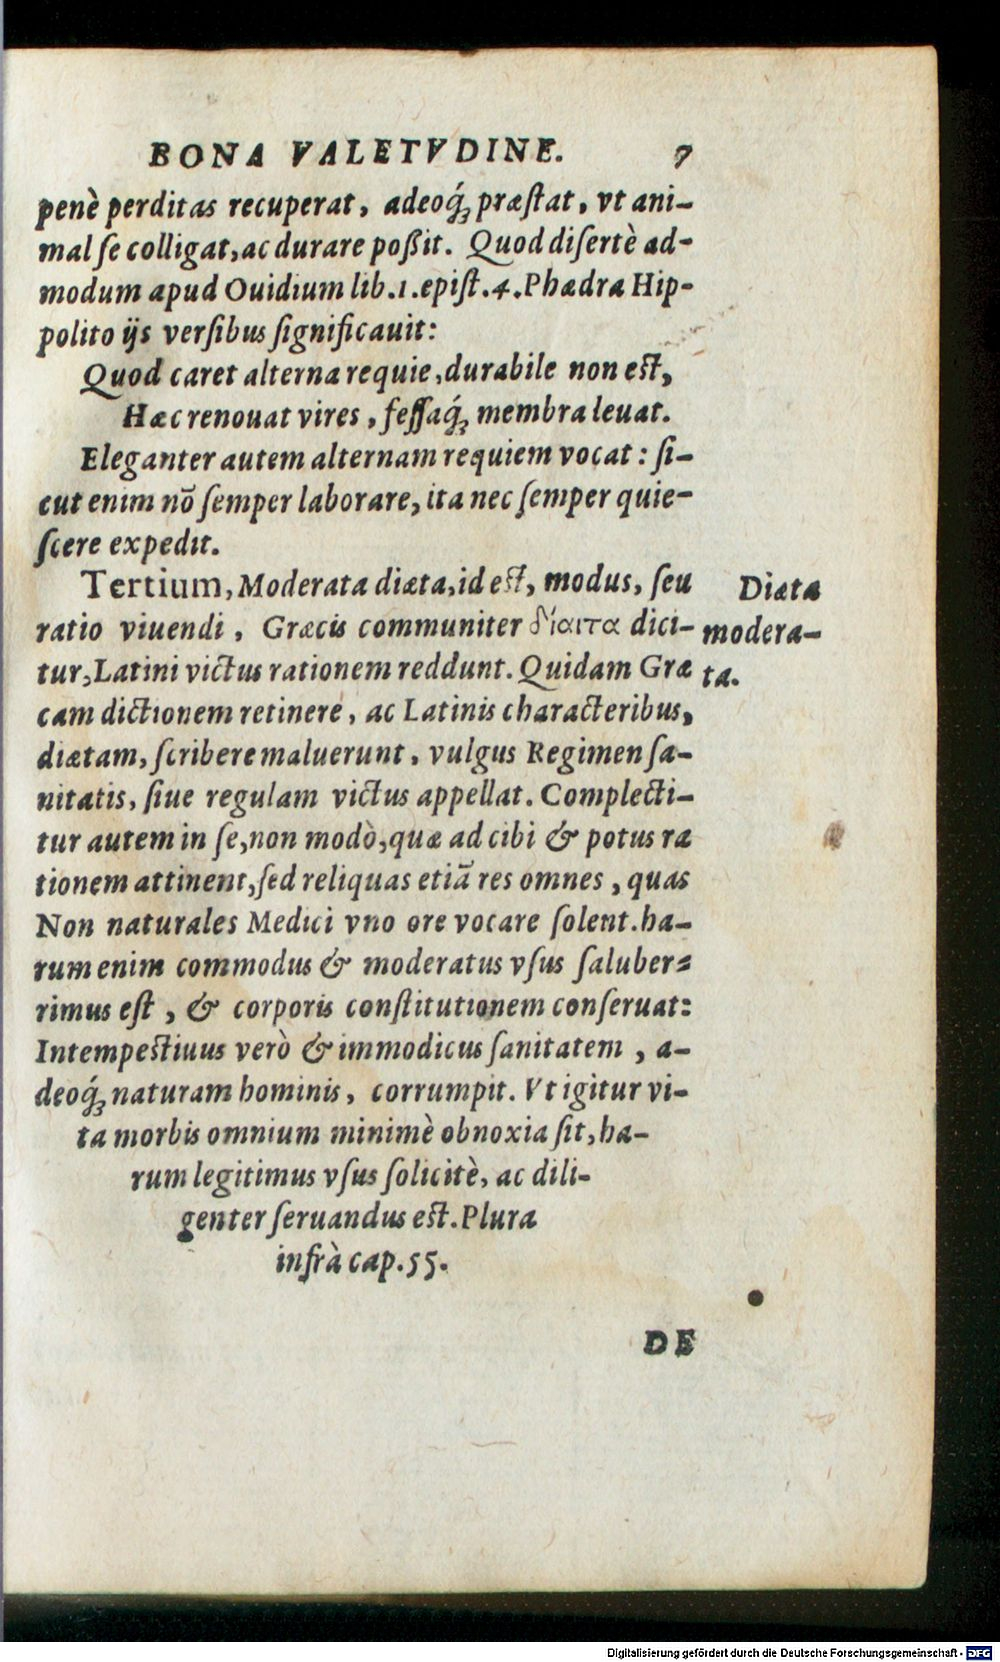 BONA VALETVDINE. 7
penè perditas recuperat, adeoq́; præſtat, vt ani-
mal ſe colligat, ac durare poßit. Quod diſertè ad-
modum apud Ouidium lib.1.epiſt.4.Phædra Hip-
polito ijs verſibus ſignificauit:
Quod caret alterna requie, durabile non eſt,
Hæc renouat vires, feſſaq́; membra leuat.
Eleganter autem alternam requiem vocat: ſi-
cut enim nō ſemper laborare, ita nec ſemper quie-
ſcere expedit.
Tertium, Moderata diæta, id eſt, modus, ſeu
ratio viuendi, Græcis communiter δίαιτα dici-
tur, Latini victus rationem reddunt. Quidam Græ
cam dictionem retinere, ac Latinis characteribus,
diætam, ſcribere maluerunt, vulgus Regimen ſa-
nitatis, ſiue regulam victus appellat. Complecti-
tur autem in ſe, non modò, quæ ad cibi & potus ra
tionem attinent, ſed reliquas etiā res omnes, quas
Non naturales Medici vno ore vocare ſolent. ha-
rum enim commodus & moderatus vſus ſaluber-
rimus eſt, & corporis conſtitutionem conſeruat:
Intempeſtiuus verò & immodicus ſanitatem, a-
deoq́; naturam hominis, corrumpit. Vt igitur vi-
ta morbis omnium minimè obnoxia ſit, ha-
rum legitimus vſus ſolicitè, ac dili-
genter ſeruandus eſt. Plura
infrà cap.55.
Diæta
modera-
ta.
DE
Digitalisierung gefördert durch die Deutsche Forschungsgemeinschaft - DFG